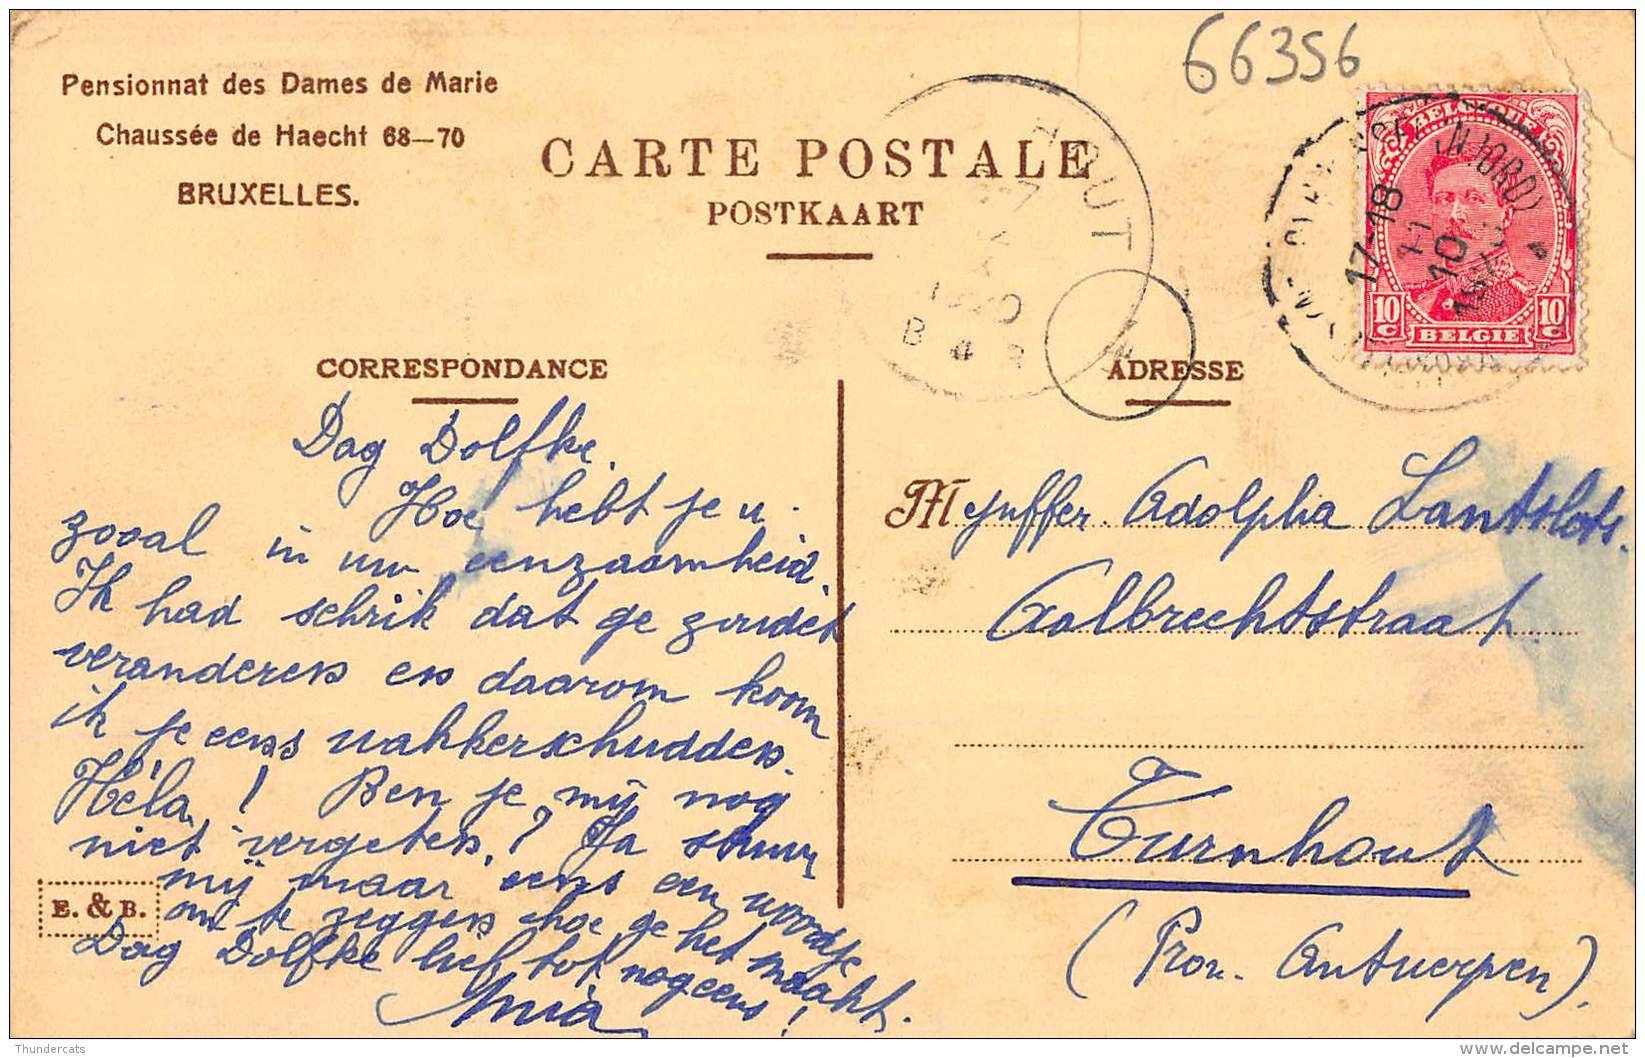 66356
Pensionnat des Dames de Marie
Chaussée de Haecht 68—70
BRUXELLES.
CARTE POSTALE
POSTKAART
HOUT
17-18
11
10
BELGIE
10 c
10 c
CORRESPONDANCE
ADRESSE
Dag Dolfke.
Hoe hebt je u
zooal in uw eenzaamheid.
Ik had schrik dat ge zoudet
veranderen en daarom koom
ik je eens wakkerschudden.
Héla! Ben je mij nog
niet vergeten? Ja stuur
mij maar eens een woordje
om te zeggen hoe ge het maakt.
Dag Dolfke lief tot nogeens!
Mia
Mejuffer. Adolpha Lantslots.
Aalbrechtstraat.
Turnhout
(Prov. Antwerpen).
E. & B.
Thundercats
delcampe.net